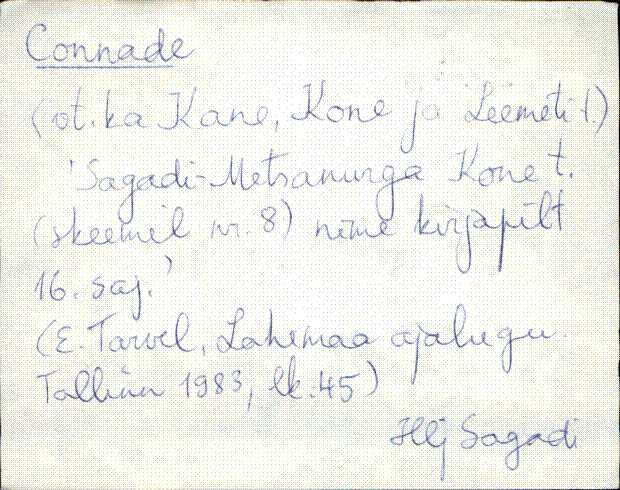 Connade
(vt. ka Kane, Kone ja Leemeti t.)
'Sagadi-Metsanurga Kone t.
(skeemil nr. 8) nime kirjapilt
16. saj.'
(E. Tarvel, Lahemaa ajalugu.
Tallinn 1983, lk. 45)
Hlj Sagadi